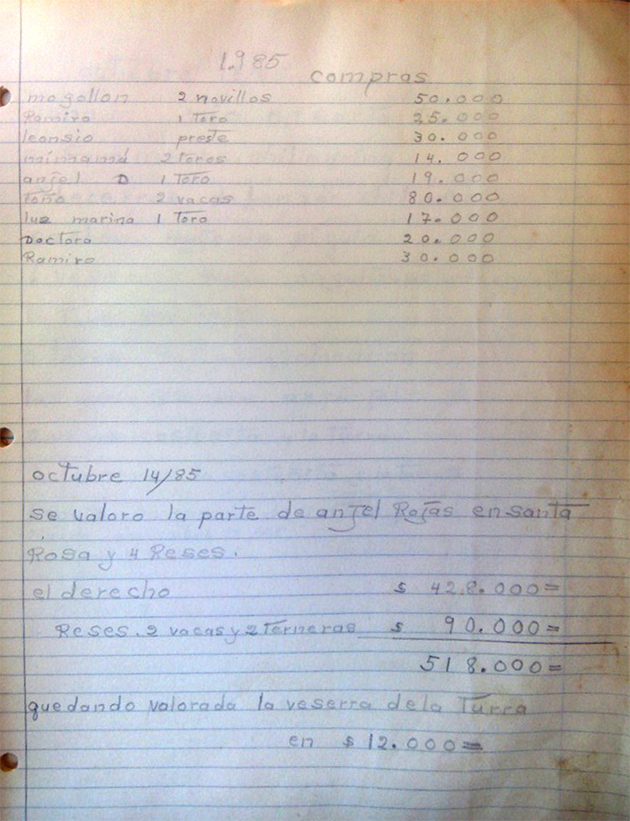 1.985
compras
mogollon 2 novillos 50.000
Ramiro 1 Toro 25.000
leonsio preste 30.000
mimamá 2 toros 14.000
anjel D 1 Toro 19.000
Toño 2 vacas 80.000
luz marina 1 Toro 17.000
Doctora 20.000
Ramiro 30.000
octubre 14/85
se valoro la parte de anjel Rojas en santa
Rosa y 4 Reses.
el derecho $ 428.000=
Reses. 2 vacas y 2 Terneras $ 90.000=
518.000=
quedando valorada la veserra dela Turra
en $ 12.000=